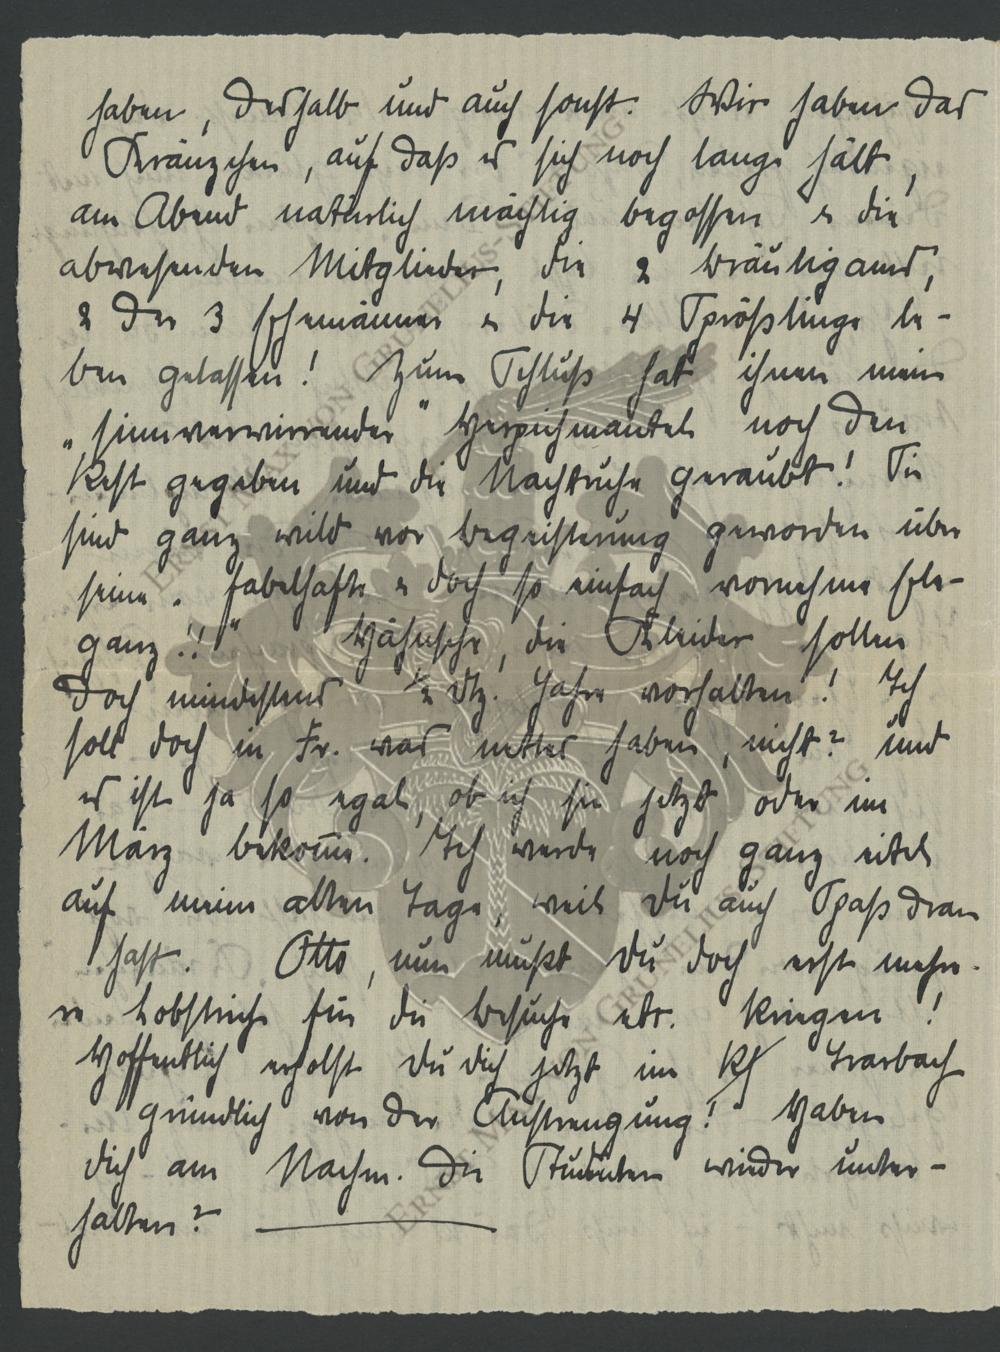 haben, deshalb und auch sonst. Wir haben das
Kränzchen, auf daß es sich noch lange hält,
am Abend natürlich mächtig begossen & die
abwesenden Mitglieder, die 2 Bräutigams,
2 der 3 Ehemänner & die 4 Sprößlinge le-
ben gelassen! Zum Schluß hat ihnen mein
„sinnverwirrender" Hermelinmantel noch den
Rest gegeben und die Nachtruhe geraubt! Sie
sind ganz wild vor Begeisterung geworden über
seine „fabelhafte & doch so einfach vornehme Ele-
ganz!!" Hänsche, die Kleider sollen
doch mindestens ½ Dtz. Jahre vorhalten! Ich
soll doch in Fr. was nettes haben, nicht? und
es ist ja so egal, ob ich sie jetzt oder im
März bekomme. Ich werde noch ganz eitel
auf meine alten Tage, weil Du auch Spaß dran
hast. Otto, nun mußt Du doch erst mehre-
re Lobstriche für die Besuche etc. kriegen!
Hoffentlich erholst Du dich jetzt im Trarbach
gründlich von der Anstrengung! Haben
dich am Nachm. die Studenten wieder unter-
halten?
ERNST MAX VON GRUNELIUS-STIFTUNG